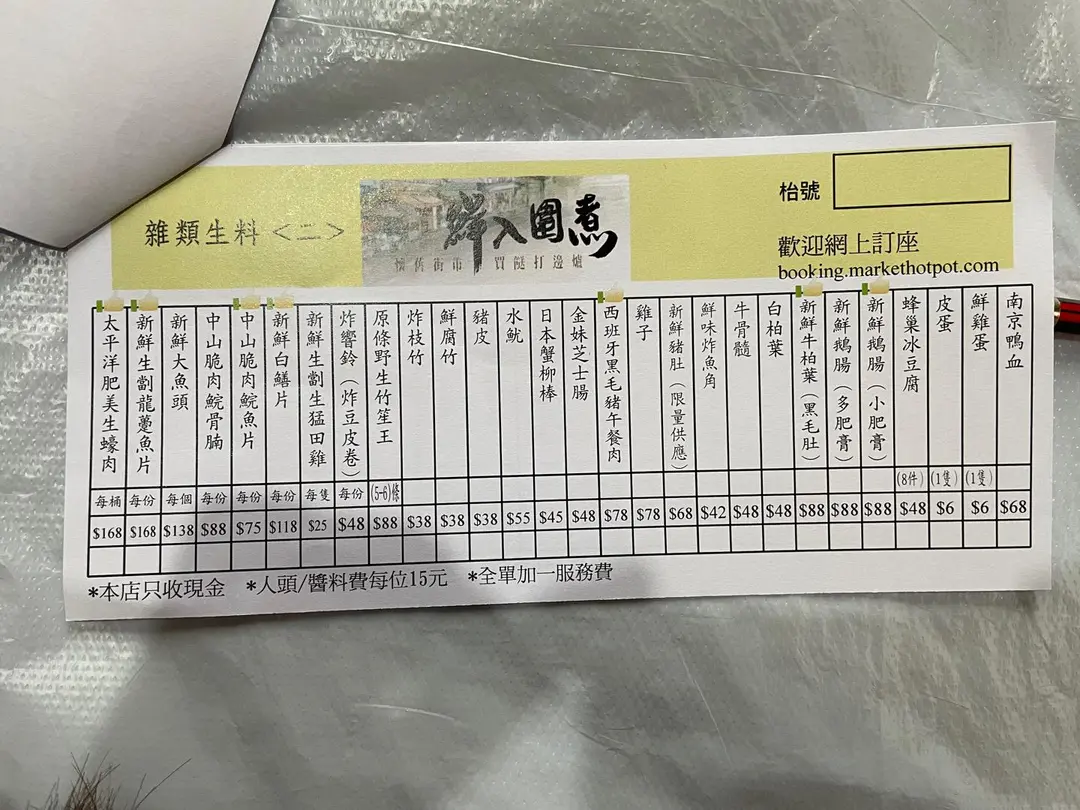 雜類生料<二>
鮮入圍煮
懷舊街市 買餸打邊爐
枱號
歡迎網上訂座
booking.markethotpot.com
太平洋肥美生蠔肉 每桶 $168
新鮮生劏龍躉魚片 每份 $168
新鮮大魚頭 每個 $138
中山脆肉鯇骨腩 每份 $88
中山脆肉鯇魚片 每份 $75
新鮮白鱔片 每份 $118
新鮮生劏生猛田雞 每隻 $25
炸響鈴(炸豆皮卷) 每份 $48
原條野生竹笙王 (5-6)條 $88
炸枝竹 $38
鮮腐竹 $38
豬皮 $38
水魷 $55
日本蟹柳棒 $45
金妹芝士腸 $48
西班牙黑毛豬午餐肉 $78
雞子 $78
新鮮豬肚(限量供應) $68
鮮味炸魚角 $42
牛骨髓 $48
白柏葉 $48
新鮮牛柏葉(黑毛肚) $88
新鮮鵝腸(多肥膏) $88
新鮮鵝腸(小肥膏) $88
蜂巢冰豆腐 (8件) $48
皮蛋 (1隻) $6
鮮雞蛋 (1隻) $6
南京鴨血 $68
*本店只收現金 *人頭/醬料費每位15元 *全單加一服務費